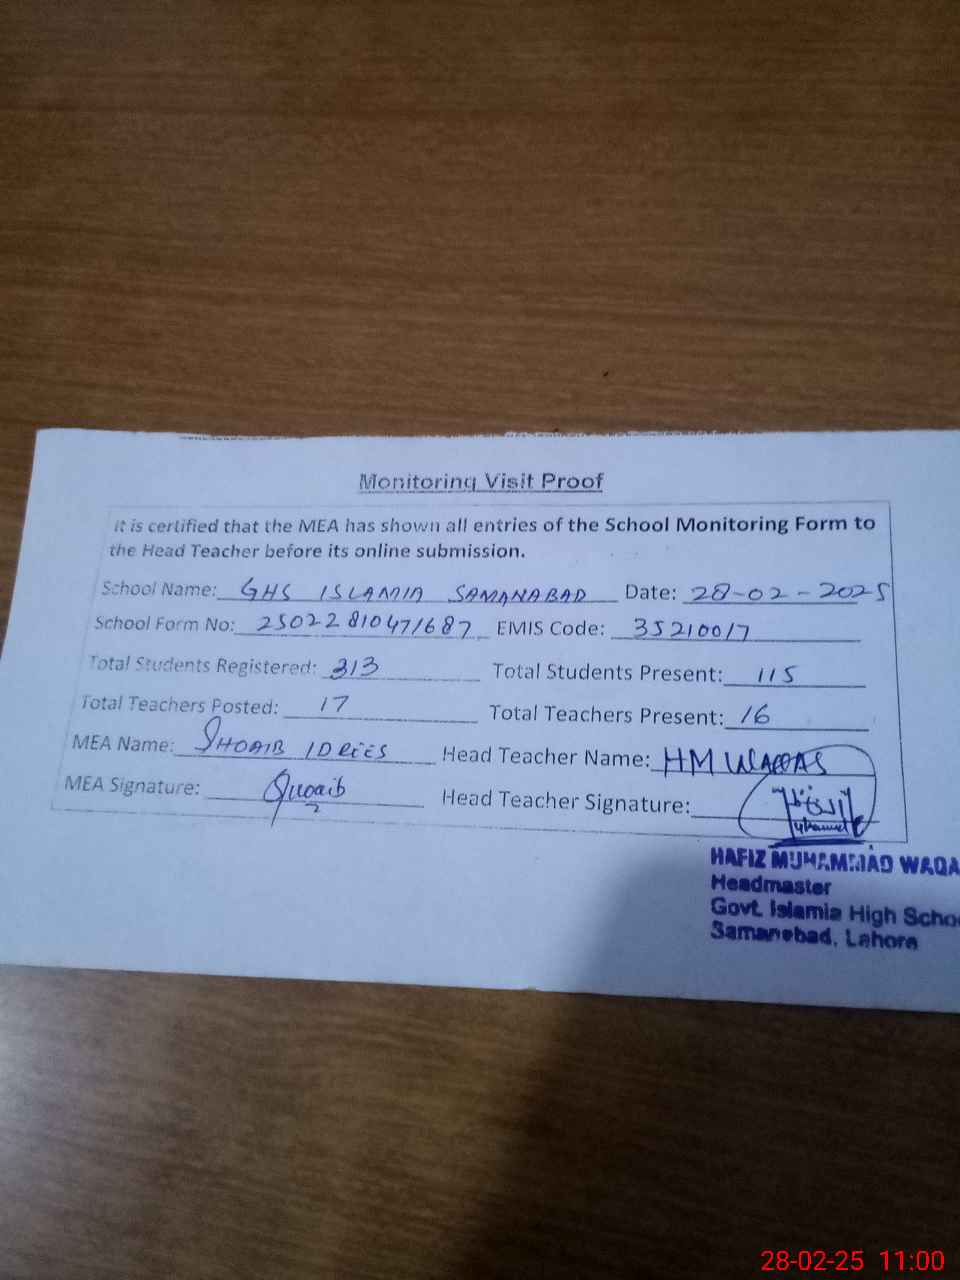 Monitoring Visit Proof
It is certified that the MEA has shown all entries of the School Monitoring Form to
the Head Teacher before its online submission.
School Name: GHS ISLAMIA SAMANABAD Date: 28-02-2025
School Form No: 25022810471687 EMIS Code: 35210017
Total Students Registered: 313 Total Students Present: 115
Total Teachers Posted: 17 Total Teachers Present: 16
MEA Name: SHOAIB IDREES Head Teacher Name: HM WAQAS
MEA Signature: Shoaib Head Teacher Signature:
HAFIZ MUHAMMAD WAQA
Headmaster
Govt. Islamia High Schoo
Samanabad, Lahore
28-02-25 11:00